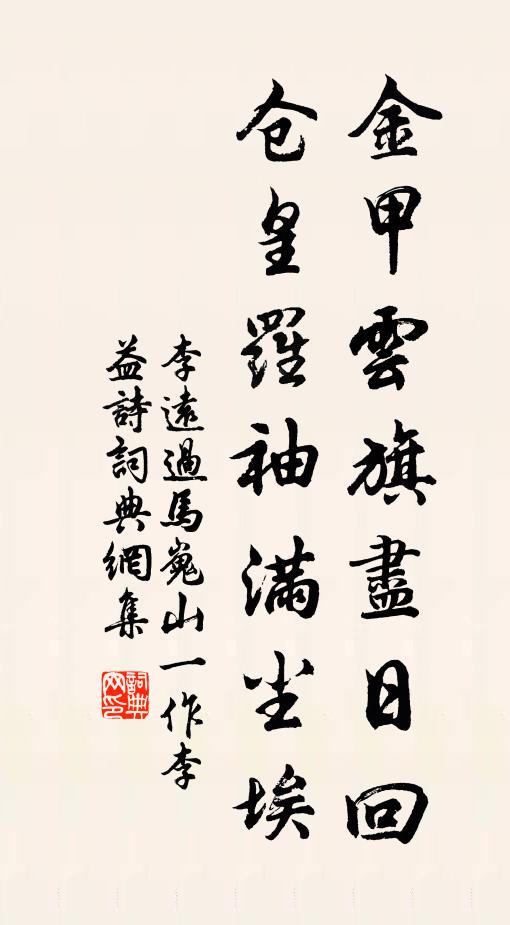 金甲雲旗盡日回
仓皇羅袖满尘埃
李遠過馬嵬山一作李
益詩詞典網集
詞典
网印